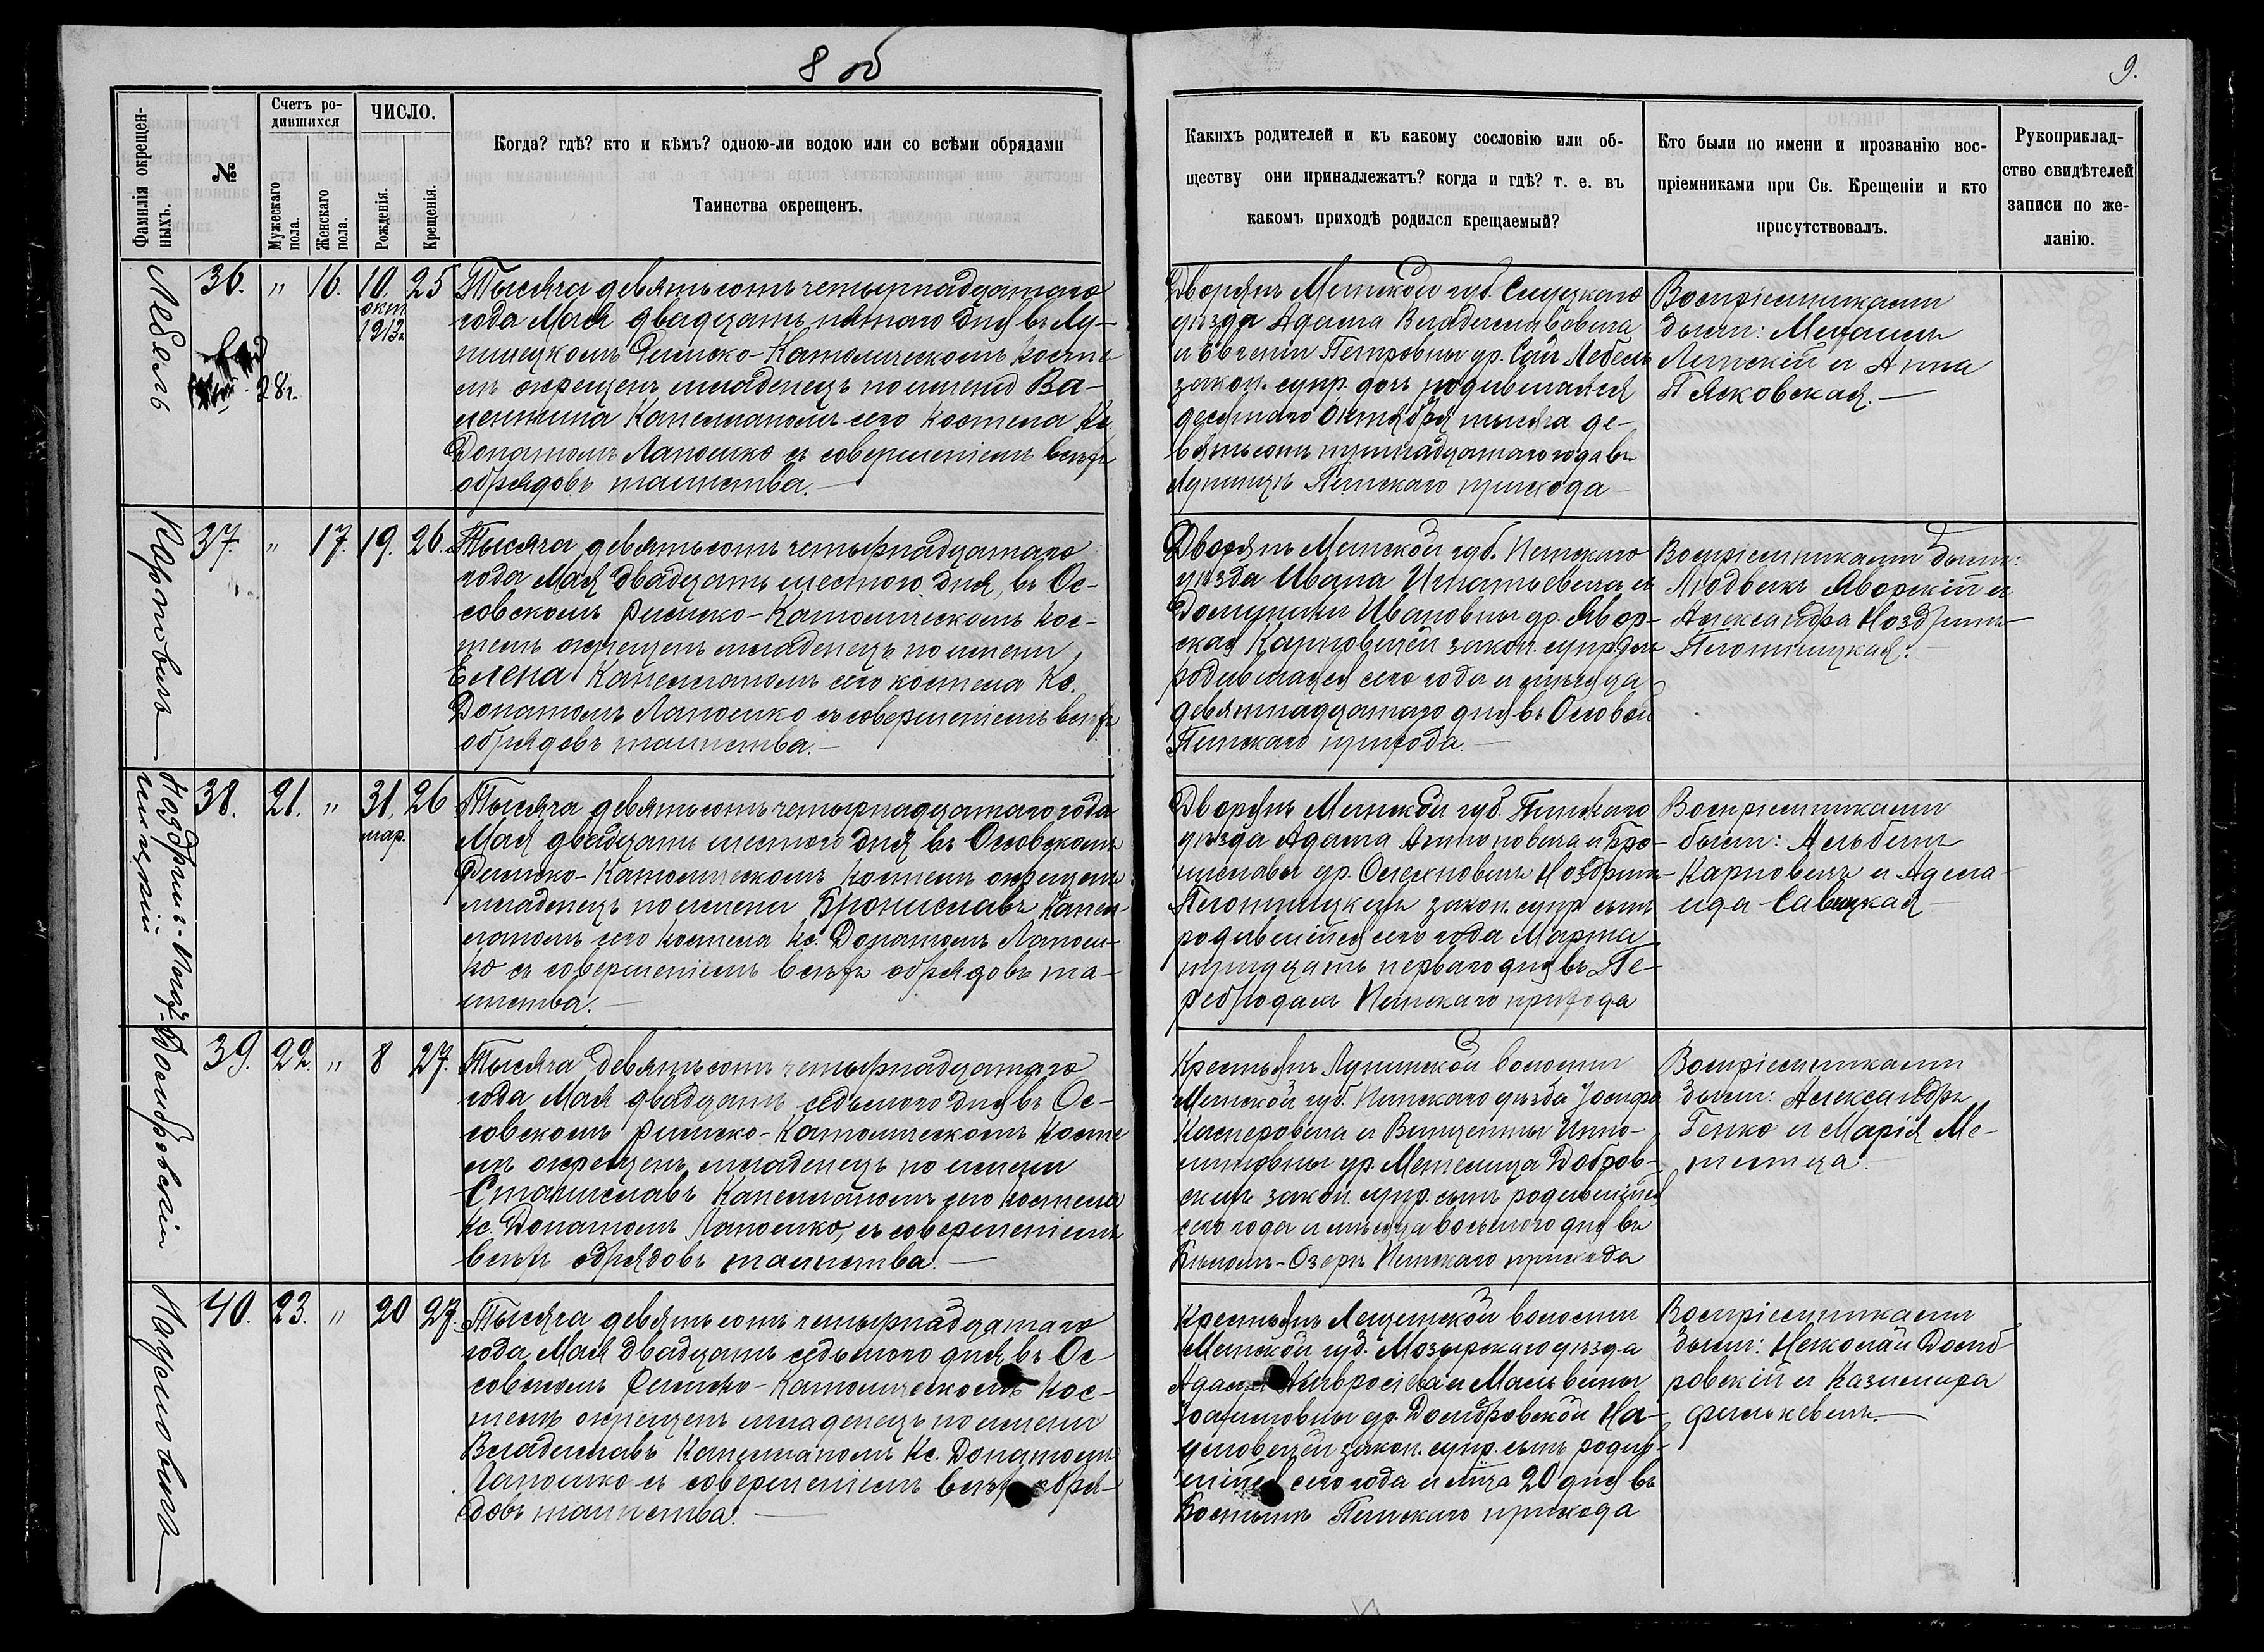 8 об
9.
Фамилія окрещен-
ныхъ.
№
Счетъ ро-
дившихся
Мужескаго
пола.
Женскаго
пола.
ЧИСЛО.
Рожденія.
Крещенія.
Когда? гдѣ? кто и кѣмъ? одною-ли водою или со всѣми обрядами
Таинства окрещенъ.
Какихъ родителей и къ какому сословію или об-
ществу они принадлежатъ? когда и гдѣ? т. е. въ
какомъ приходѣ родился крещаемый?
Кто были по имени и прозванію вос-
пріемниками при Св. Крещеніи и кто
присутствовалъ.
Рукоприклад-
ство свидѣтелей
записи по же-
ланію.
Лебель
36. " 16. 10. 25
окт.
1913г.
28г.
Тысяча девятьсотъ четырнадцатаго
года Мая двадцать пятаго дня въ Лу-
нинецкомъ Римско-Католическомъ косте-
лѣ окрещенъ младенецъ по имени Ва-
лентина Капелланомъ сего костела Кс.
Донатомъ Лапошко съ совершеніемъ всѣхъ
обрядовъ таинства.—
Дворянъ Минской губ. Слуцкаго
уѣзда Адама Владиславовича
и Евгеніи Петровны ур. Лебель
закон. супр. дочь родившаяся
десятаго Октября тысяча де-
вятьсотъ тринадцатаго года въ
Лунинцѣ Пинскаго прихода
Воспріемниками
были:
и Анна
Карповичъ
37. " 17. 19. 26.
Тысяча девятьсотъ четырнадцатаго
года Мая двадцать шестого дня, въ Ос-
совскомъ Римско-Католическомъ кос-
телѣ окрещенъ младенецъ по имени
Елена Капелланомъ сего костела Кс.
Донатомъ Лапошко съ совершеніемъ всѣхъ
обрядовъ таинства.—
Дворянъ Минской губ. Пинскаго
уѣзда Ивана Игнатьевича и
Доминики Ивановны ур. Явор-
ской Карповичей закон. супр. дочь
родившаяся сего года и мѣсяца
девятнадцатаго дня въ Оссовой
Пинскаго прихода.—
Воспріемниками были:
Людвикъ Яворскій и
Александра Ноздринъ-
Плотницкая.
Ноздринъ-Плот-
ницкій
38. 21. " 31. 26
мар.
Тысяча девятьсотъ четырнадцатаго года
Мая двадцать шестого дня въ Оссовскомъ
Римско-Католическомъ костелѣ окрещенъ
младенецъ по имени Брониславъ Капел-
ланомъ сего костела Кс. Донатомъ Лапош-
ко съ совершеніемъ всѣхъ обрядовъ та-
инства.—
Дворянъ Минской губ. Пинскаго
уѣзда Адама Антоновича и Бро-
ниславы ур. Ноздринъ-
Плотницкихъ закон. супр. сынъ
родившійся сего года Марта
тридцать перваго дня въ Пе-
ребродахъ Пинскаго прихода
Воспріемниками
были:
Карповичъ и Адела-
ида Савицкая
Домбровскій
39. 22. " 8 27.
Тысяча девятьсотъ четырнадцатаго
года Мая двадцать седьмого дня въ Ос-
совскомъ Римско-Католическомъ косте-
лѣ окрещенъ младенецъ по имени
Станиславъ Капелланомъ сего костела
Кс. Донатомъ Лапошко, съ совершеніемъ
всѣхъ обрядовъ таинства.—
Крестьянъ Лунинской волости
Минской губ. Пинскаго уѣзда Іосифа
Касперовича и Винценты Иппо-
литовны ур. Метелица Домбров-
скихъ закон. супр. сынъ родившійся
сего года и мѣсяца восьмого дня въ
Бѣломъ-Озерѣ Пинскаго прихода
Воспріемниками
были: Александръ
Генко и Марія Ме-
телица.
Нацисловичъ
40. 23. " 20 27.
Тысяча девятьсотъ четырнадцатаго
года Мая двадцать седьмого дня въ Ос-
совскомъ Римско-Католическомъ кос-
телѣ окрещенъ младенецъ по имени
Владиславъ Капелланомъ Кс. Донатомъ
Лапошко съ совершеніемъ всѣхъ обря-
довъ таинства.—
Крестьянъ волости
Минской губ. Мозырскаго уѣзда
Адама и Мальвины
ур. Домбровской
закон. супр. сынъ родив-
шійся сего года и м-ца 20 дня въ
Пинскаго прихода
Воспріемниками
были: Николай Домб-
ровскій и Казимира
Филькевичъ.—